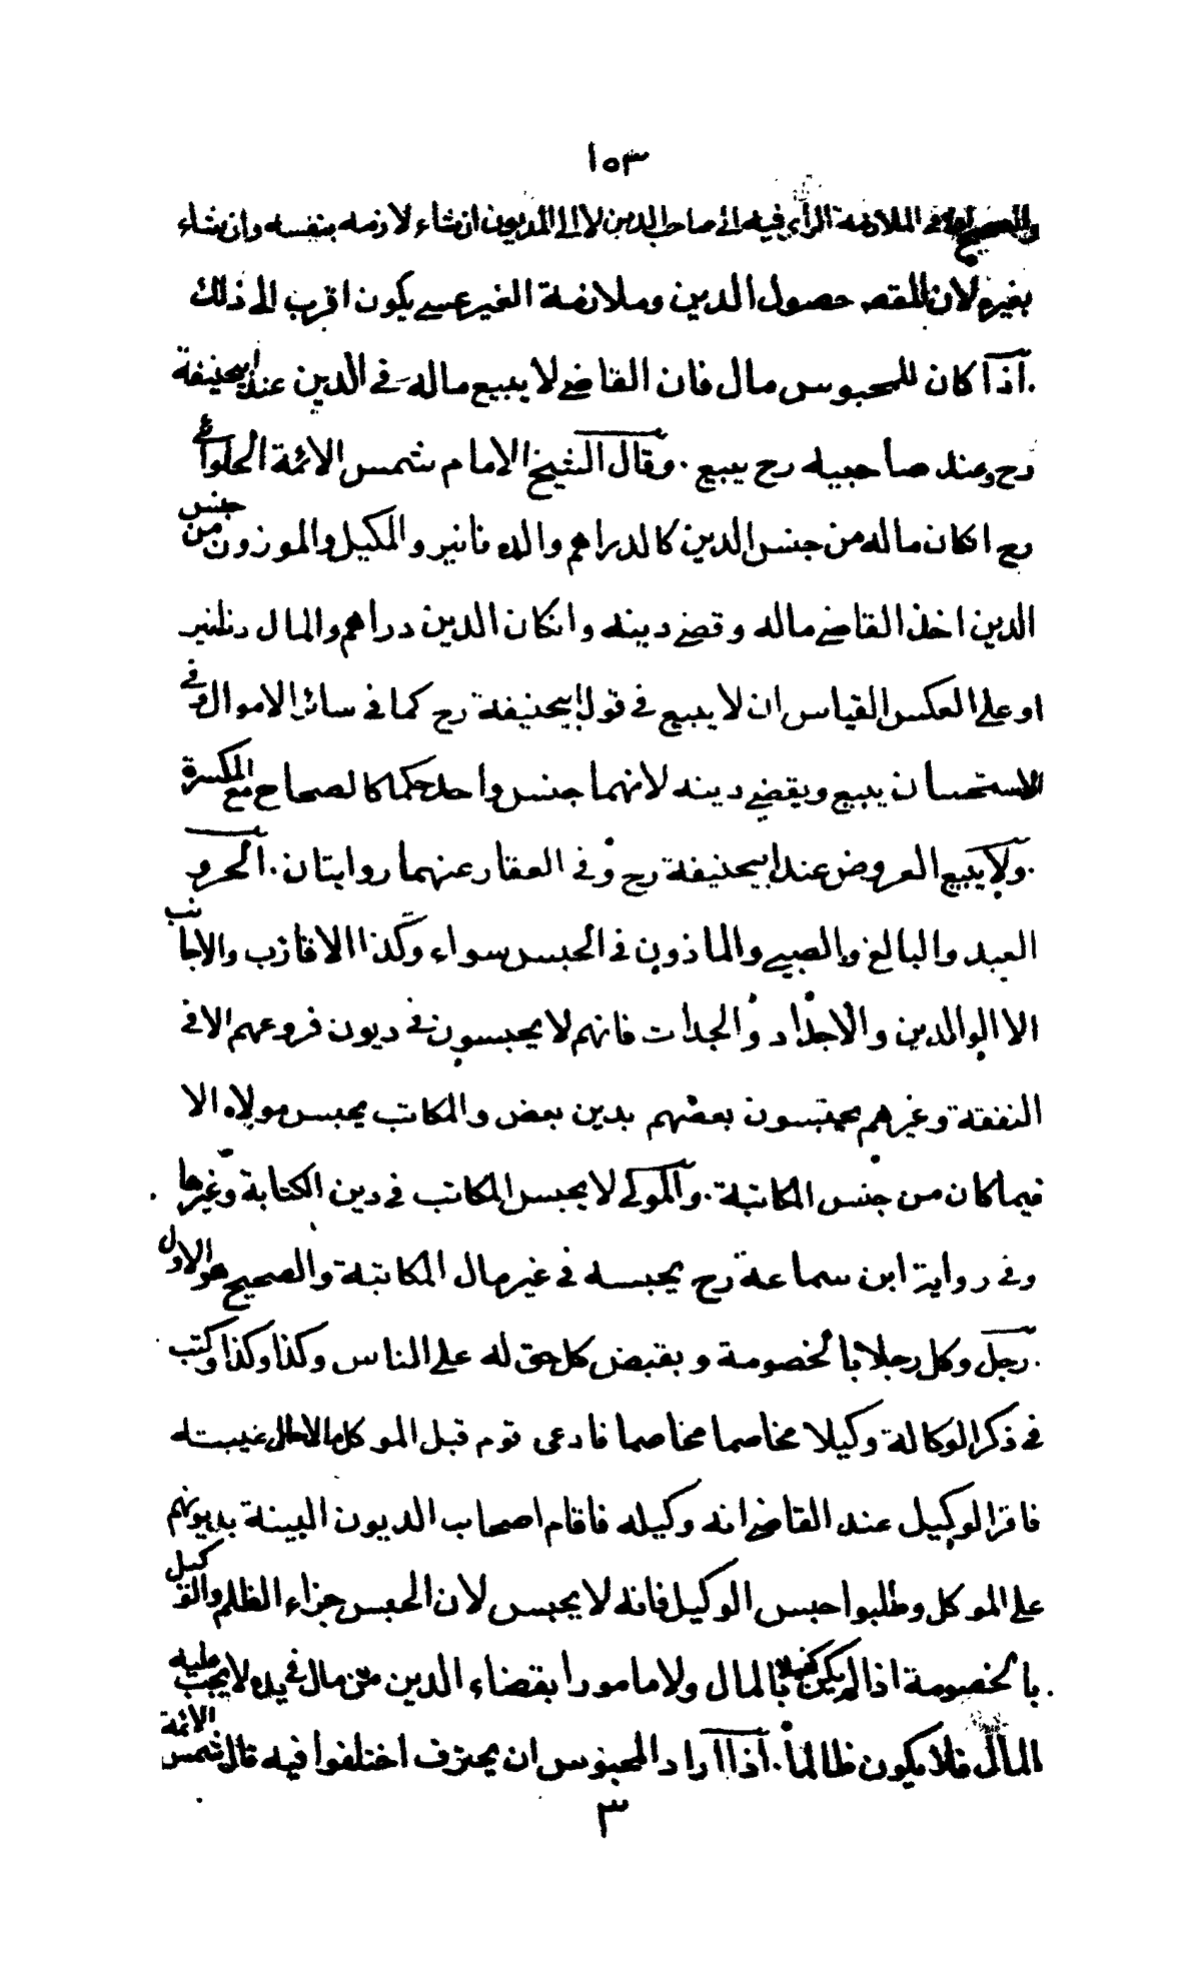 ١٥٣
والصحيح في الملازمة الرأي فيه الى صاحب الدين لا الى المديون ان شاء لازمه بنفسه وان شاء
بغيره لان المقصد حصول الدين وملازمة الغير عسى يكون اقرب الى ذلك
. اذا كان للمحبوس مال فان القاضي لا يبيع ماله في الدين عند ابيحنيفة
رح وعند صاحبيه رح يبيع . وقال الشيخ الامام شمس الائمة الحلوائي
رح انكان ماله من جنس الدين كالدراهم والدنانير والمكيل والموزون من جنس
الدين اخذ القاضي ماله وقضى دينه وانكان الدين دراهم والمال دنانير
او على العكس القياس ان لا يبيع في قول ابيحنيفة رح كما في سائر الاموال وفي
الاستحسان يبيع ويقضي دينه لانهما جنس واحد حكما كالصحاح مع المكسرة
. ولا يبيع العروض عند ابيحنيفة رح وفي العقار عنهما روايتان . الحر و
العبد والبالغ والصبي والماذون في الحبس سواء وكذا الاقارب والاجانب
الا الوالدين والاجداد والجدات فانهم لا يحبسون في ديون فروعهم الا في
النفقة وغيرهم يحبسون بعضهم بدين بعض والمكاتب يحبس مولاه الا
فيما كان من جنس المكاتبة . والمولى لا يحبس المكاتب في دين الكتابة وغيرها .
وفي رواية ابن سماعة رح يحبسه في غير مال المكاتبة والصحيح هو الاول
. رجل وكل رجلا بالخصومة وبقبض كل حق له على الناس وكذا وكذا وكتب
في ذكر الوكالة وكيلا مخاصما مخاصما فادعى قوم قبل الموكل مالا حال غيبته
فاقر الوكيل عند القاضي انه وكيله فاقام اصحاب الديون البينة بديونهم
على الموكل وطلبوا حبس الوكيل فانه لا يحبس لان الحبس جزاء الظلم والوكيل
. بالخصومة اذا لم يكن كفيلا بالمال ولا مامورا بقضاء الدين من مال في يده لا يجب عليه
المال فلا يكون ظالما . اذا اراد المحبوس ان يحترف اختلفوا فيه قال شمس الائمة
٣